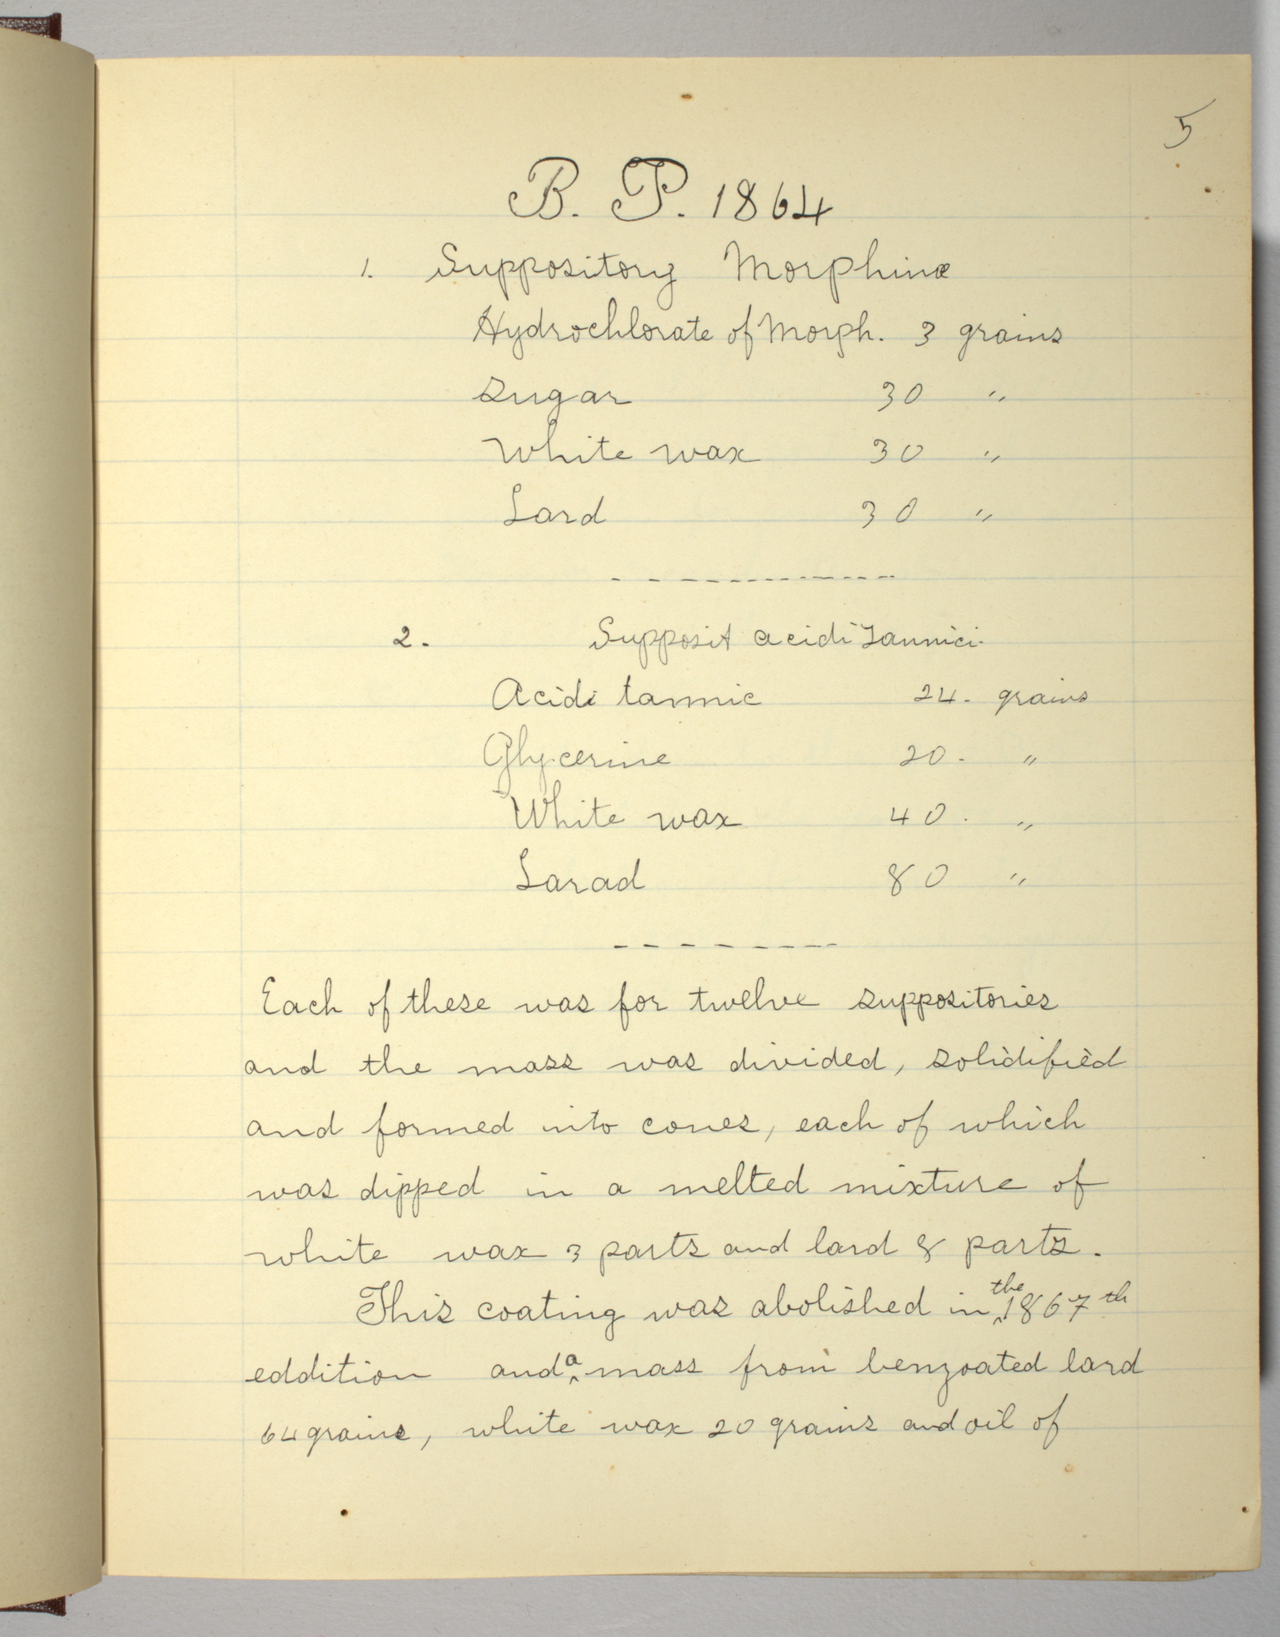 5
B. P. 1864
1. Suppository Morphinæ
Hydrochlorate of Morph. 3 grains
Sugar 30 "
White wax 30 "
Lard 30 "
- - - - - - - - - - - - -
2. Supposit acidi Tannici.
Acidi tannic 24. grains
Glycerine 20. "
White wax 40. "
Larad 80 "
- - - - - - - -
Each of these was for twelve suppositories
and the mass was divided, solidified
and formed into cones, each of which
was dipped in a melted mixture of
white wax 3 parts and lard 8 parts.
This coating was abolished in the 1867th
eddition and a mass from benzoated lard
64 grains, white wax 20 grains and oil of